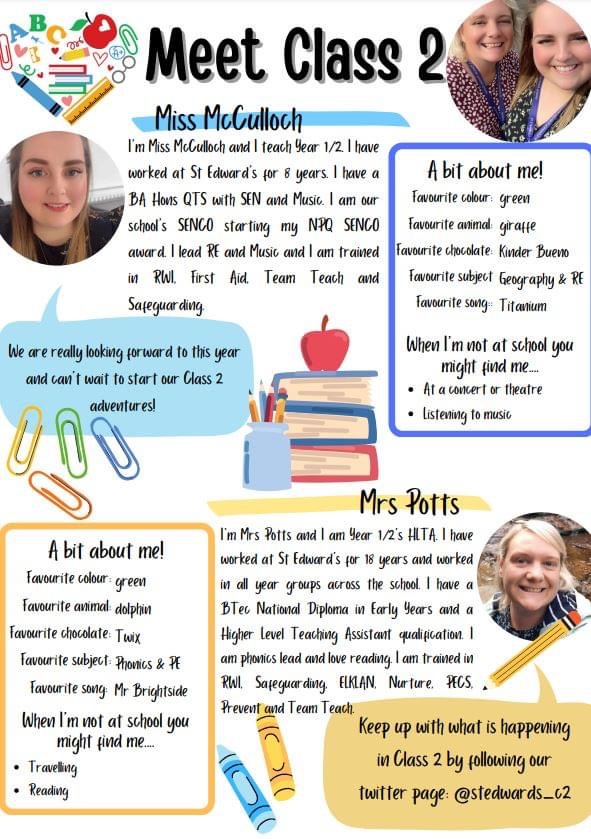 Meet Class 2
Miss McCulloch
I'm Miss McCulloch and I teach Year 1/2. I have
worked at St Edward's for 8 years. I have a
BA Hons QTS with SEN and Music. I am our
school's SENCO starting my NPQ SENCO
award. I lead RE and Music and I am trained
in RWI, First Aid, Team Teach and
Safeguarding.
A bit about me!
Favourite colour: green
Favourite animal: giraffe
Favourite chocolate: Kinder Bueno
Favourite subject Geography & RE
Favourite song:: Titanium
When I'm not at school you
might find me....
• At a concert or theatre
• Listening to music
We are really looking forward to this year
and can't wait to start our Class 2
adventures!
Mrs Potts
I'm Mrs Potts and I am Year 1/2's HLTA. I have
worked at St Edward's for 18 years and worked
in all year groups across the school. I have a
BTec National Diploma in Early Years and a
Higher Level Teaching Assistant qualification. I
am phonics lead and love reading. I am trained in
RWI, Safeguarding, ELKLAN, Nurture, PECS,
Prevent and Team Teach.
A bit about me!
Favourite colour: green
Favourite animal: dolphin
Favourite chocolate: Twix
Favourite subject: Phonics & PE
Favourite song: Mr Brightside
When I'm not at school you
might find me....
• Travelling
• Reading
Keep up with what is happening
in Class 2 by following our
twitter page: @stedwards_c2